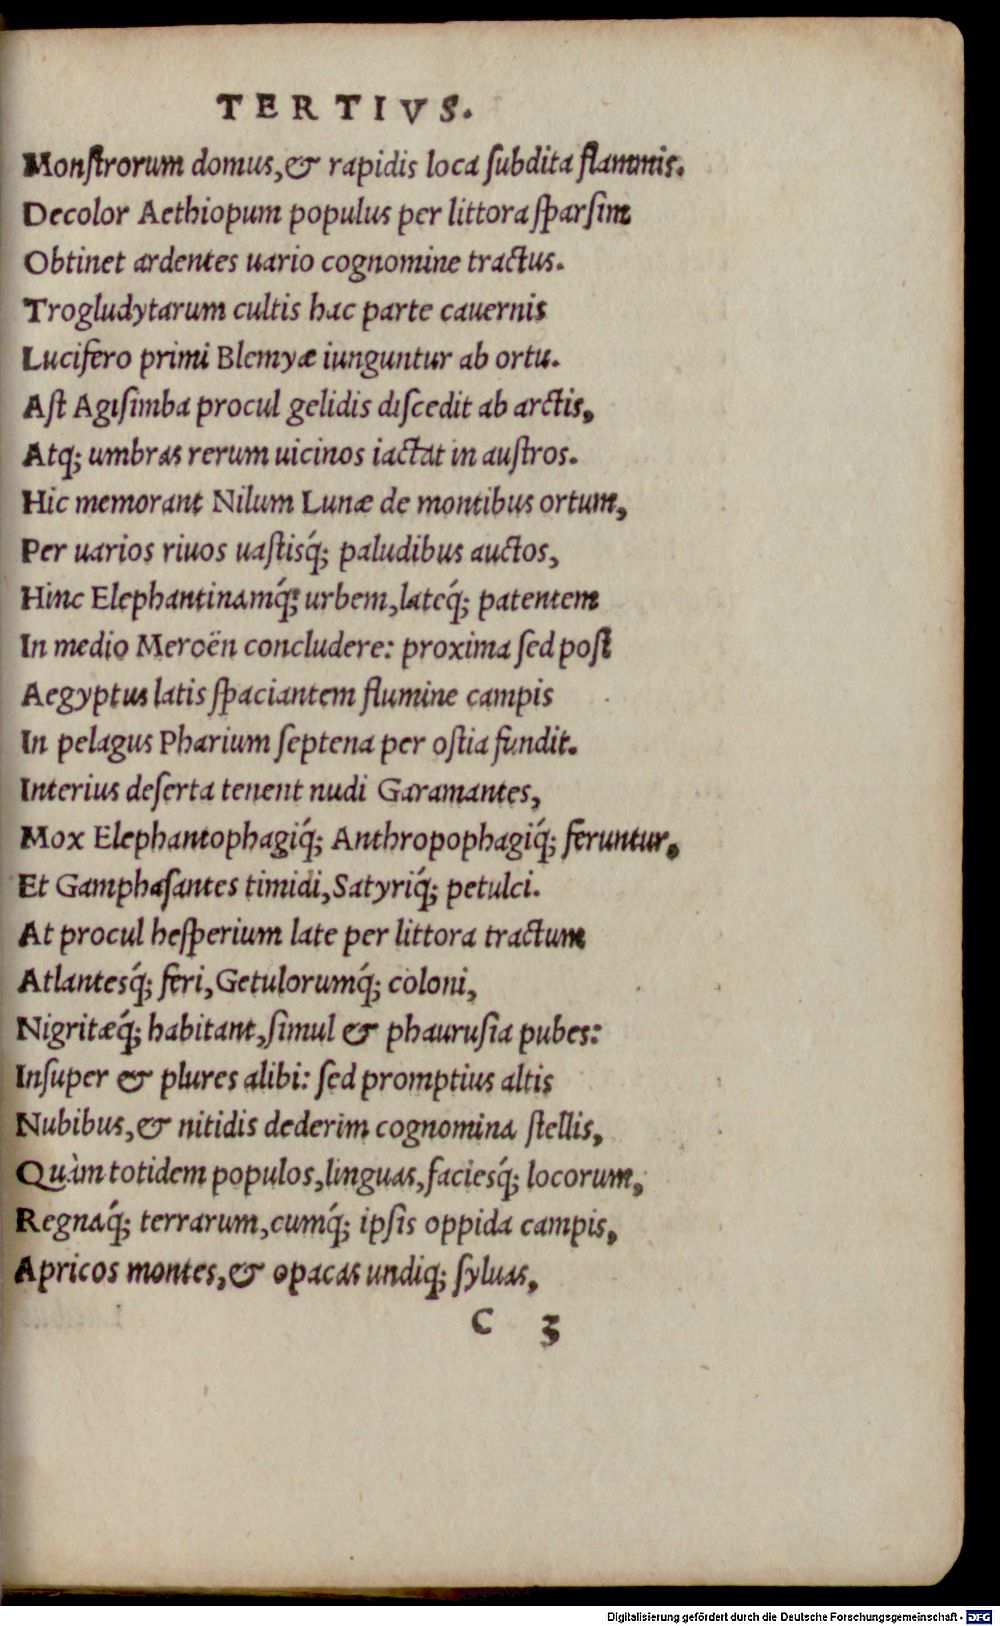 TERTIVS.
Monſtrorum domus,& rapidis loca ſubdita flammis.
Decolor Aethiopum populus per littora ſparſim
Obtinet ardentes uario cognomine tractus.
Trogludytarum cultis hac parte cauernis
Lucifero primi Blemyæ iunguntur ab ortu.
Aſt Agiſimba procul gelidis diſcedit ab arctis,
Atq; umbras rerum uicinos iactat in auſtros.
Hic memorant Nilum Lunæ de montibus ortum,
Per uarios riuos uaſtisq́; paludibus auctos,
Hinc Elephantinamq́; urbem,lateq́; patentem
In medio Meroën concludere: proxima ſed poſt
Aegyptus latis ſpaciantem flumine campis
In pelagus Pharium ſeptena per oſtia fundit.
Interius deſerta tenent nudi Garamantes,
Mox Elephantophagiq́; Anthropophagiq́; feruntur,
Et Gamphaſantes timidi,Satyriq́; petulci.
At procul heſperium late per littora tractum
Atlantesq́; feri,Getulorumq́; coloni,
Nigritæq́; habitant,ſimul & phauruſia pubes:
Inſuper & plures alibi: ſed promptius altis
Nubibus,& nitidis dederim cognomina ſtellis,
Quàm totidem populos,linguas,faciesq́; locorum,
Regnaq́; terrarum,cumq́; ipſis oppida campis,
Apricos montes,& opacas undiq; ſyluas,
C 3
Digitalisierung gefördert durch die Deutsche Forschungsgemeinschaft - DFG